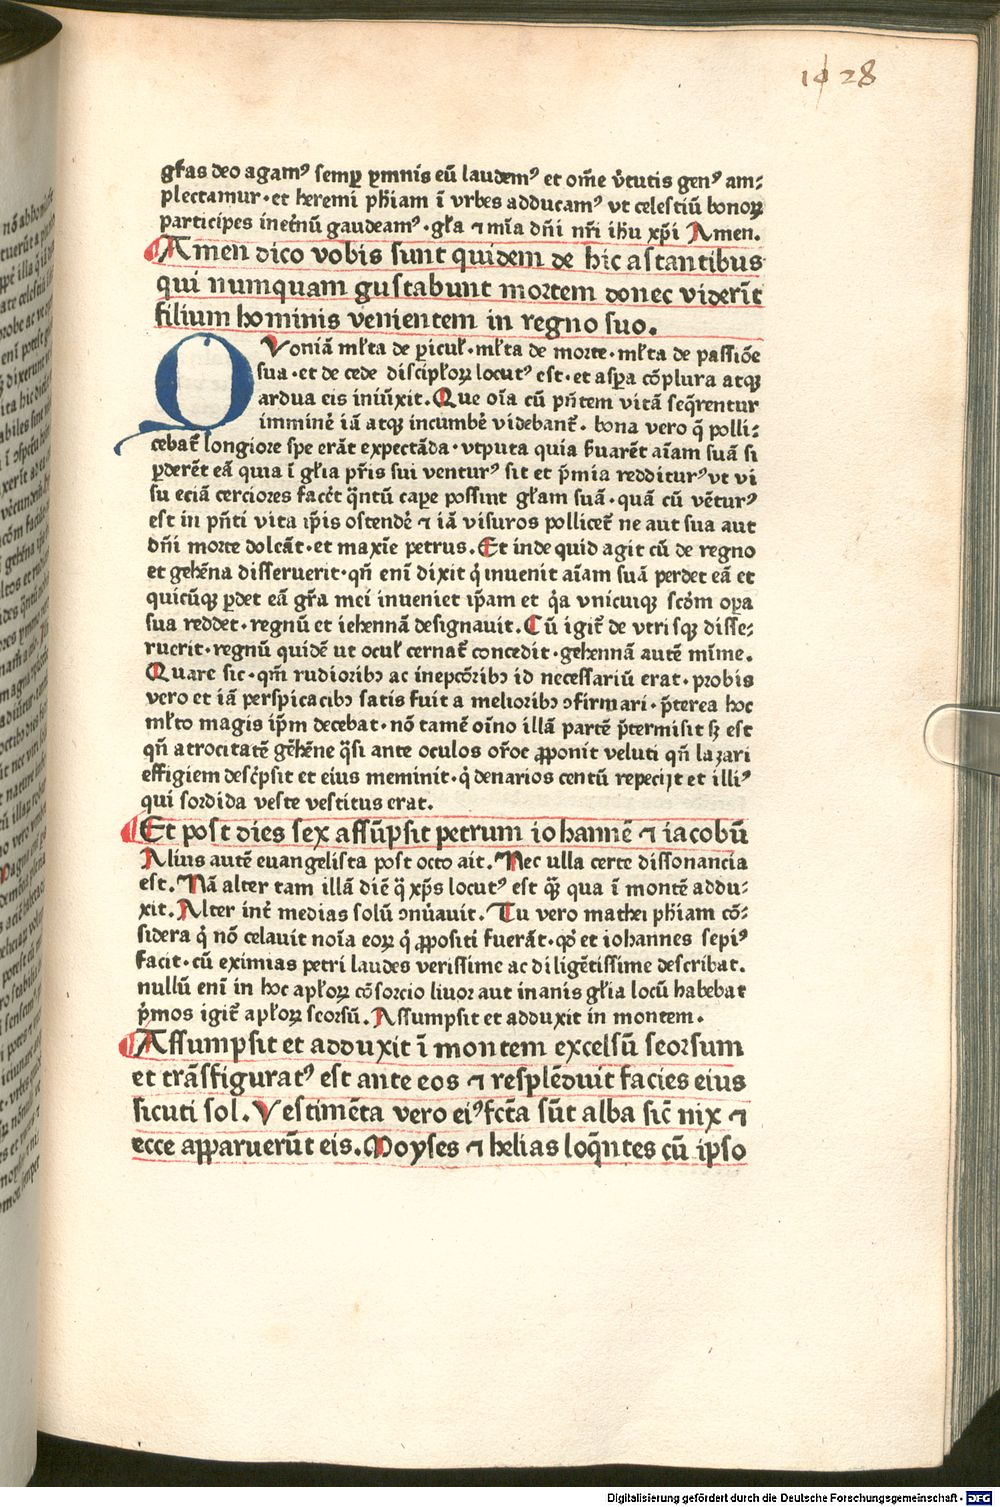 1428
gr̄as deo agamꝰ semꝑ ꝑmnis eū laudemꝰ et om̄e v̄tutis genꝰ am⸗
plectamur · et heremi ph̄iam ī vrbes adducamꝰ vt celestiū bonoꝝ
participes inet̄nū gaudeamꝰ · gr̄a ⁊ mīa dn̄i nr̄i ih̄u xp̄i Amen.
Amen dico vobis sunt quidem de hic astantibus
qui numquam gustabunt mortem donec viderīt
filium hominis venientem in regno suo.
QVoniā ml̄ta de ꝑicul̄ · ml̄ta de morte · ml̄ta de passiōe
sua · et de cede discipl̄oꝝ locutꝰ est · et asꝑa cōplura atqꝫ
ardua eis iniūxit. Que oīa cū pn̄tem vitā seq̄rentur
imminē iā atqꝫ incumbē videbant̄. bona vero q̄ polli⸗
cebat̄ longiore spe erāt expectāda · vtputa quia ẜuarēt aīam suā si
ꝑderēt eā quia ī gl̄ia pr̄is sui venturꝰ sit et p̄mia redditurꝰ vt vi
su eciā cerciores facēt q̄ntū caꝑe possint gl̄am suā · quā cū vētur̄ꝰ
est in pn̄ti vita ip̄is ostendē ⁊ iā visuros pollicet̄ ne aut sua aut
dn̄i morte dolcāt · et maxīe petrus. Et inde quid agit cū de regno
et gehēna disseruerit · qn̄ enī dixit q̇ inuenit aīam suā perdet eā et
quicūqꝫ ꝑdet eā gr̄a mei inueniet ip̄am et q̇a vnicuiqꝫ scd̄m oꝑa
sua reddet · regnū et iehennā designauit. Cū igit̄ de vtrisqꝫ disse⸗
ruerit · regnū quidē ut ocul̄ cernat̄ concedit · gehennā autē mīme.
Quare sic · qm̄ rudioribꝰ ac inepcōribꝰ id necessariū erat · probis
vero et iā perspicacibꝰ satis fuit a melioribꝰ ꝯfirmari · p̄terea hoc
ml̄to magis ip̄m decebat · nō tamē oīno illā partē p̄termisit sꝫ est
qn̄ atrocitatē gēhēne q̄si ante oculos or̄oe ꝓponit veluti qn̄ lazari
effigiem desc̄psit et eius meminit · q̇ denarios centū repecijt et illiꝰ
qui sordida veste vestitus erat.
Et post dies sex assūpsit petrum iohannē ⁊ iacobū
Alius autē euangelista post octo ait. Nec ulla certe dissonancia
est. Nā alter tam illā diē q̄ xp̄s locutꝰ est qꝫ̄ qua ī montē addu⸗
xit. Alter int̄ medias solū ꝯnūauit. Tu vero mathei ph̄iam cō⸗
sidera q̇ nō celauit noīa eoꝝ q̇ ꝓpositi fuerāt · qd̄ et iohannes sepiꝰ
facit · cū eximias petri laudes verissime ac diligētissime describat.
nullū enī in hoc apl̄oꝝ cōsorcio liuor aut inanis gl̄ia locū habebat
p̄mos igit̄ apl̄oꝝ seorsū. Assumpsit et adduxit in montem.
Assumpsit et adduxit ī montem excelsū seorsum
et trāsfiguratꝰ est ante eos ⁊ resplēduit facies eius
sicuti sol. Vestimēta vero eiꝰ fct̄a sūt alba sic̄ nix ⁊
ecce apparuerūt eis. Moyses ⁊ helias loq̄ntes cū ipso
Digitalisierung gefördert durch die Deutsche Forschungsgemeinschaft - DFG